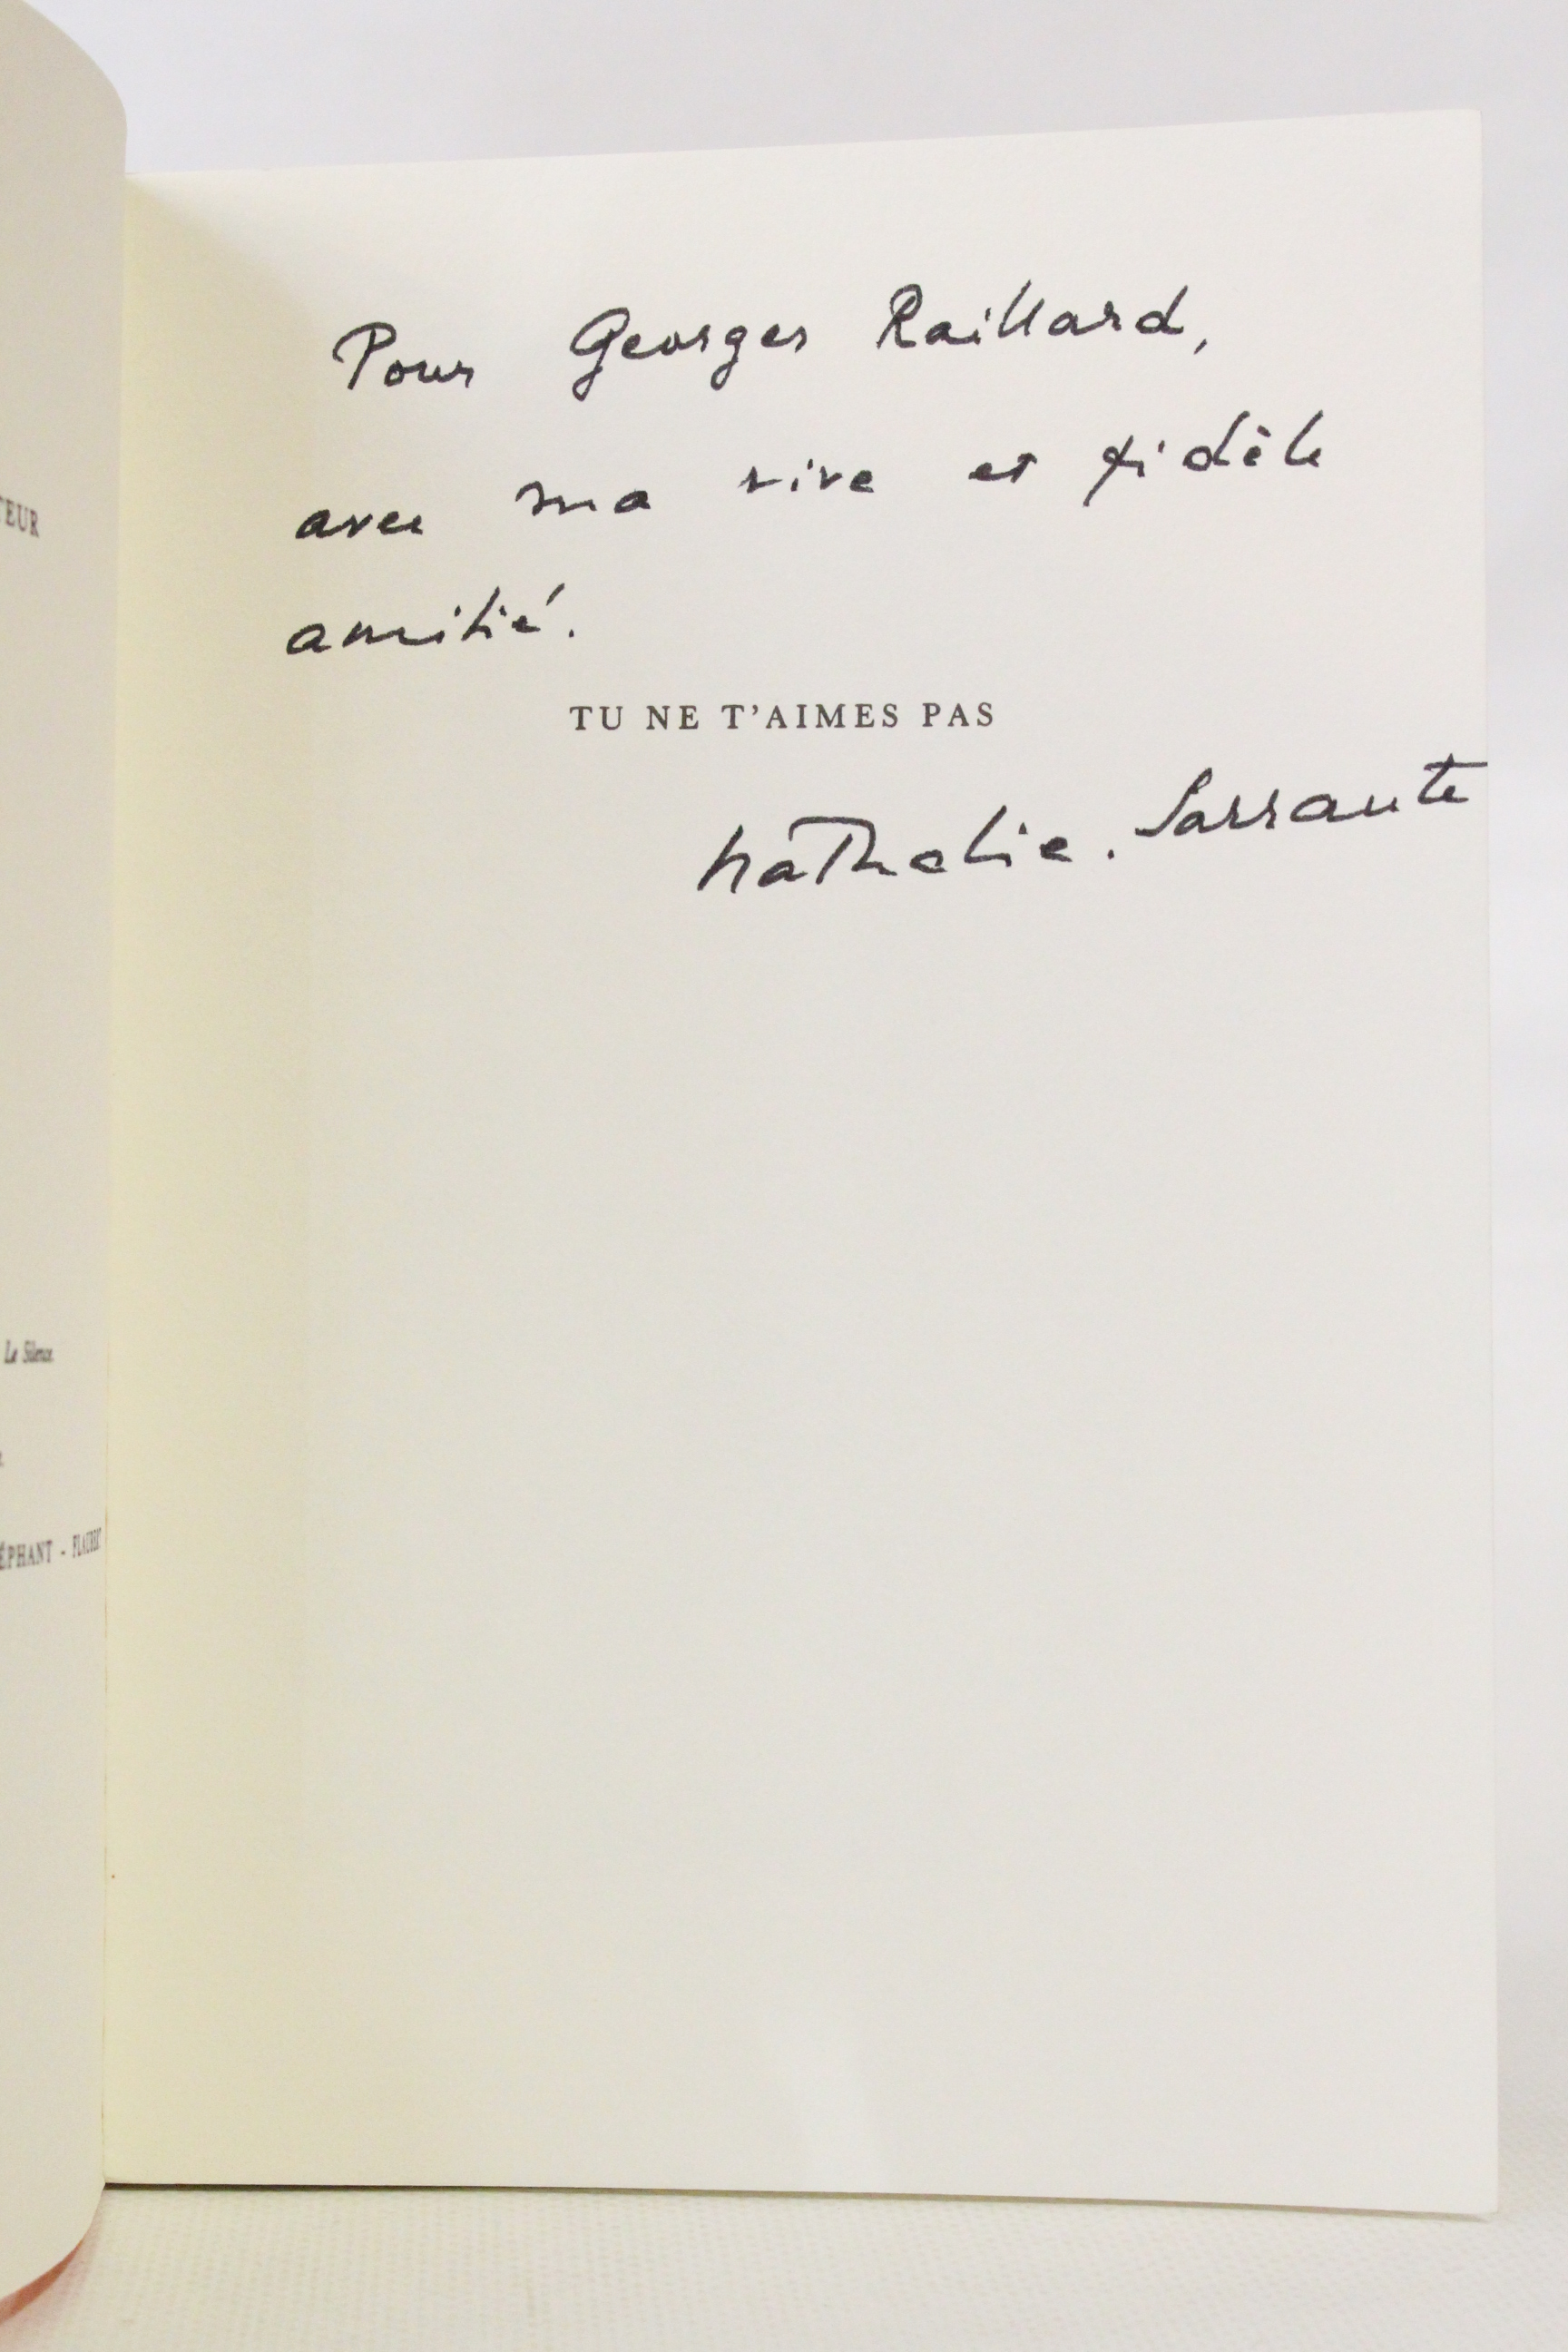 TEUR
Le Silence.
ÉPHANT - FLAUBERT
Pour Georges Raillard,
avec ma vive et fidèle
amitié.
TU NE T'AIMES PAS
Nathalie. Sarraute